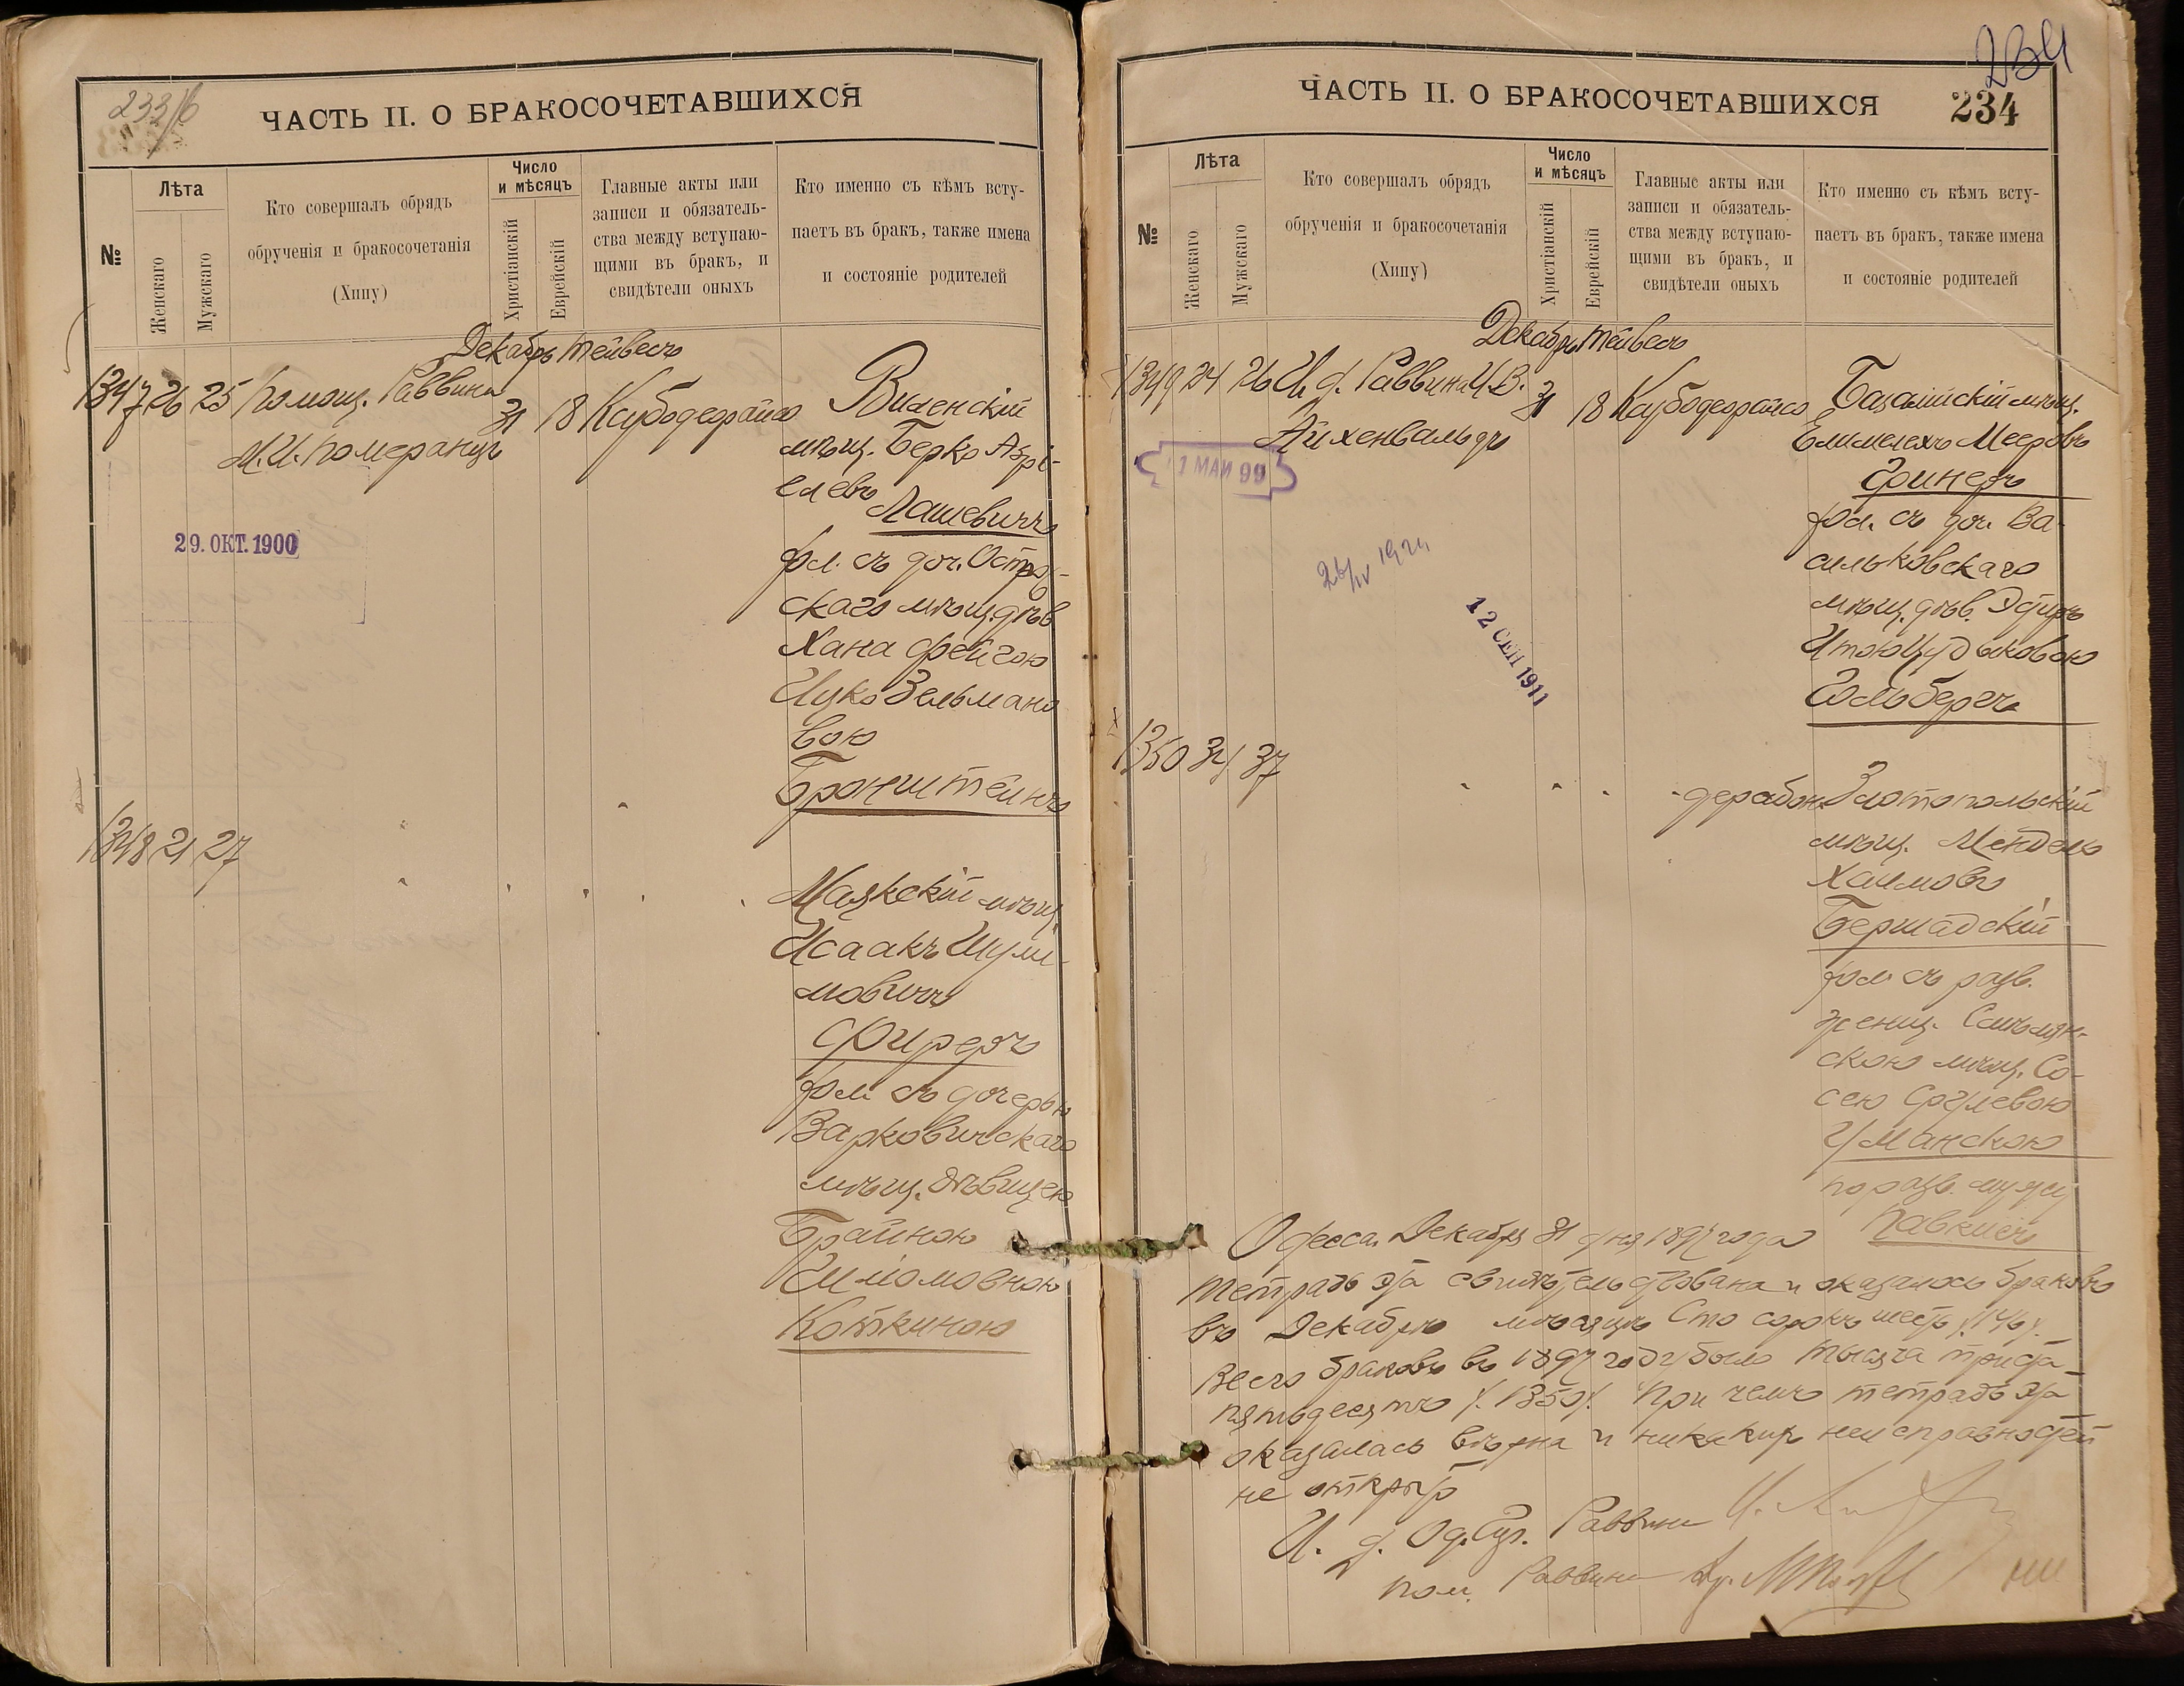 233/б
ЧАСТЬ II. О БРАКОСОЧЕТАВШИХСЯ
№
Лѣта
Женскаго
Мужскаго
Кто совершалъ обрядъ
обрученія и бракосочетанія
(Хипу)
Число
и мѣсяцъ
Христіанскій
Еврейскій
Главные акты или
записи и обязатель-
ства между вступаю-
щими въ бракъ, и
свидѣтели оныхъ
Кто именно съ кѣмъ всту-
паетъ въ бракъ, также имена
и состояніе родителей
Декабрь Тейвесъ
1347 26 25 Помощ. Раввина
М. И. Померанцъ
31 18 Каубодеорайсо
Виленскій
мѣщ. Берко Азрі-
елевъ
Лашевичъ
хол. съ доч. Остро-
скаго мѣщ. дѣв.
Хана Фейгою
Ицко Зельмано
вою
Бронштейнъ
29. ОКТ. 1900
1348 21 27
Маякскій мѣщ.
Исаакъ Шули-
мовичъ
Фиреръ
хол. съ дочерью
Варковичскаго
мѣщ. дѣвицею
Брайною
Шліомовною
Коткиною
234
ЧАСТЬ II. О БРАКОСОЧЕТАВШИХСЯ
234
№
Лѣта
Женскаго
Мужскаго
Кто совершалъ обрядъ
обрученія и бракосочетанія
(Хипу)
Число
и мѣсяцъ
Христіанскій
Еврейскій
Главные акты или
записи и обязатель-
ства между вступаю-
щими въ бракъ, и
свидѣтели оныхъ
Кто именно съ кѣмъ всту-
паетъ въ бракъ, также имена
и состояніе родителей
Декабрь Тейвесъ
1349 24 26 И. д. Раввина И. В.
Айхенвальдъ
31 18 Каубодеорайсо
Базалійскій мѣщ.
Елимелехъ Мееровъ
Гринеръ
хол. съ доч. Ва-
сильковскаго
мѣщ. дѣв. Эстеръ
Итою Цудыковою
Гольбергъ
1 МАЙ 99
26/IV 1924
12 СЕН 1911
1350 34 37
дерабон. Златопольскій
мѣщ. Мендель
Хаимовъ
Бершадскій
хол. съ разв.
женщ. Смѣлян-
скою мѣщ. Со-
сею Срулевою
Уманскою
по разв. мужу
Одесса, Декабря 31 дня 1897 года
Тетрадь эта свидѣтельствована и оказалось браковъ
въ Декабрѣ мѣсяцѣ Сто сорокъ шесть /146/.
Всего браковъ въ 1897 году было Тысяча триста
пятьдесятъ /1350/. При чемъ тетрадь эта
оказалась вѣрна и никакихъ неисправностей
не открыто
И. д. Од. Гор. Раввина
Пом. Раввина Др.